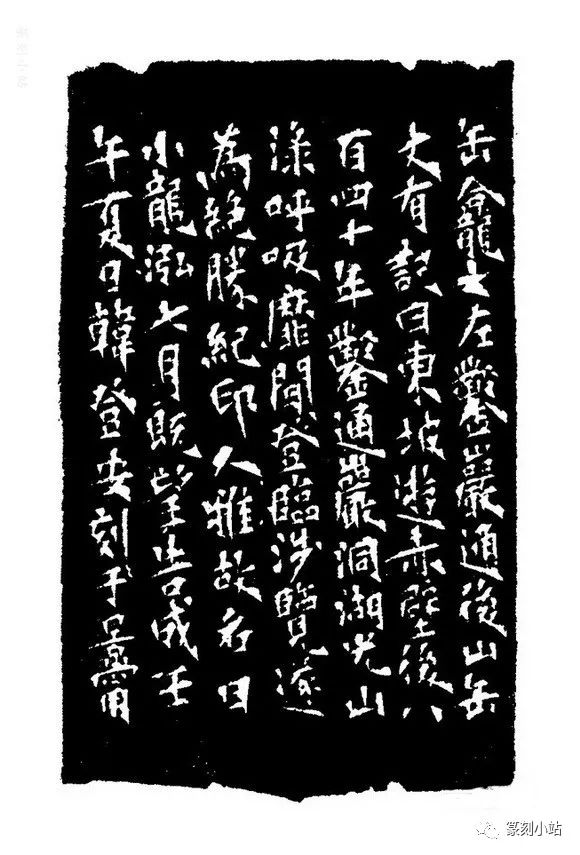 缶龕之左鑿巖通後山缶
丈有記曰東坡遊赤壁後八
百四十年鑿通巖洞湖光山
淥呼吸靡間登臨涉覽遂
為絕勝紀印人雅故名曰
小龍泓七月既望告成壬
午夏日韓登安刻于景甯
篆刻小站
篆刻小站